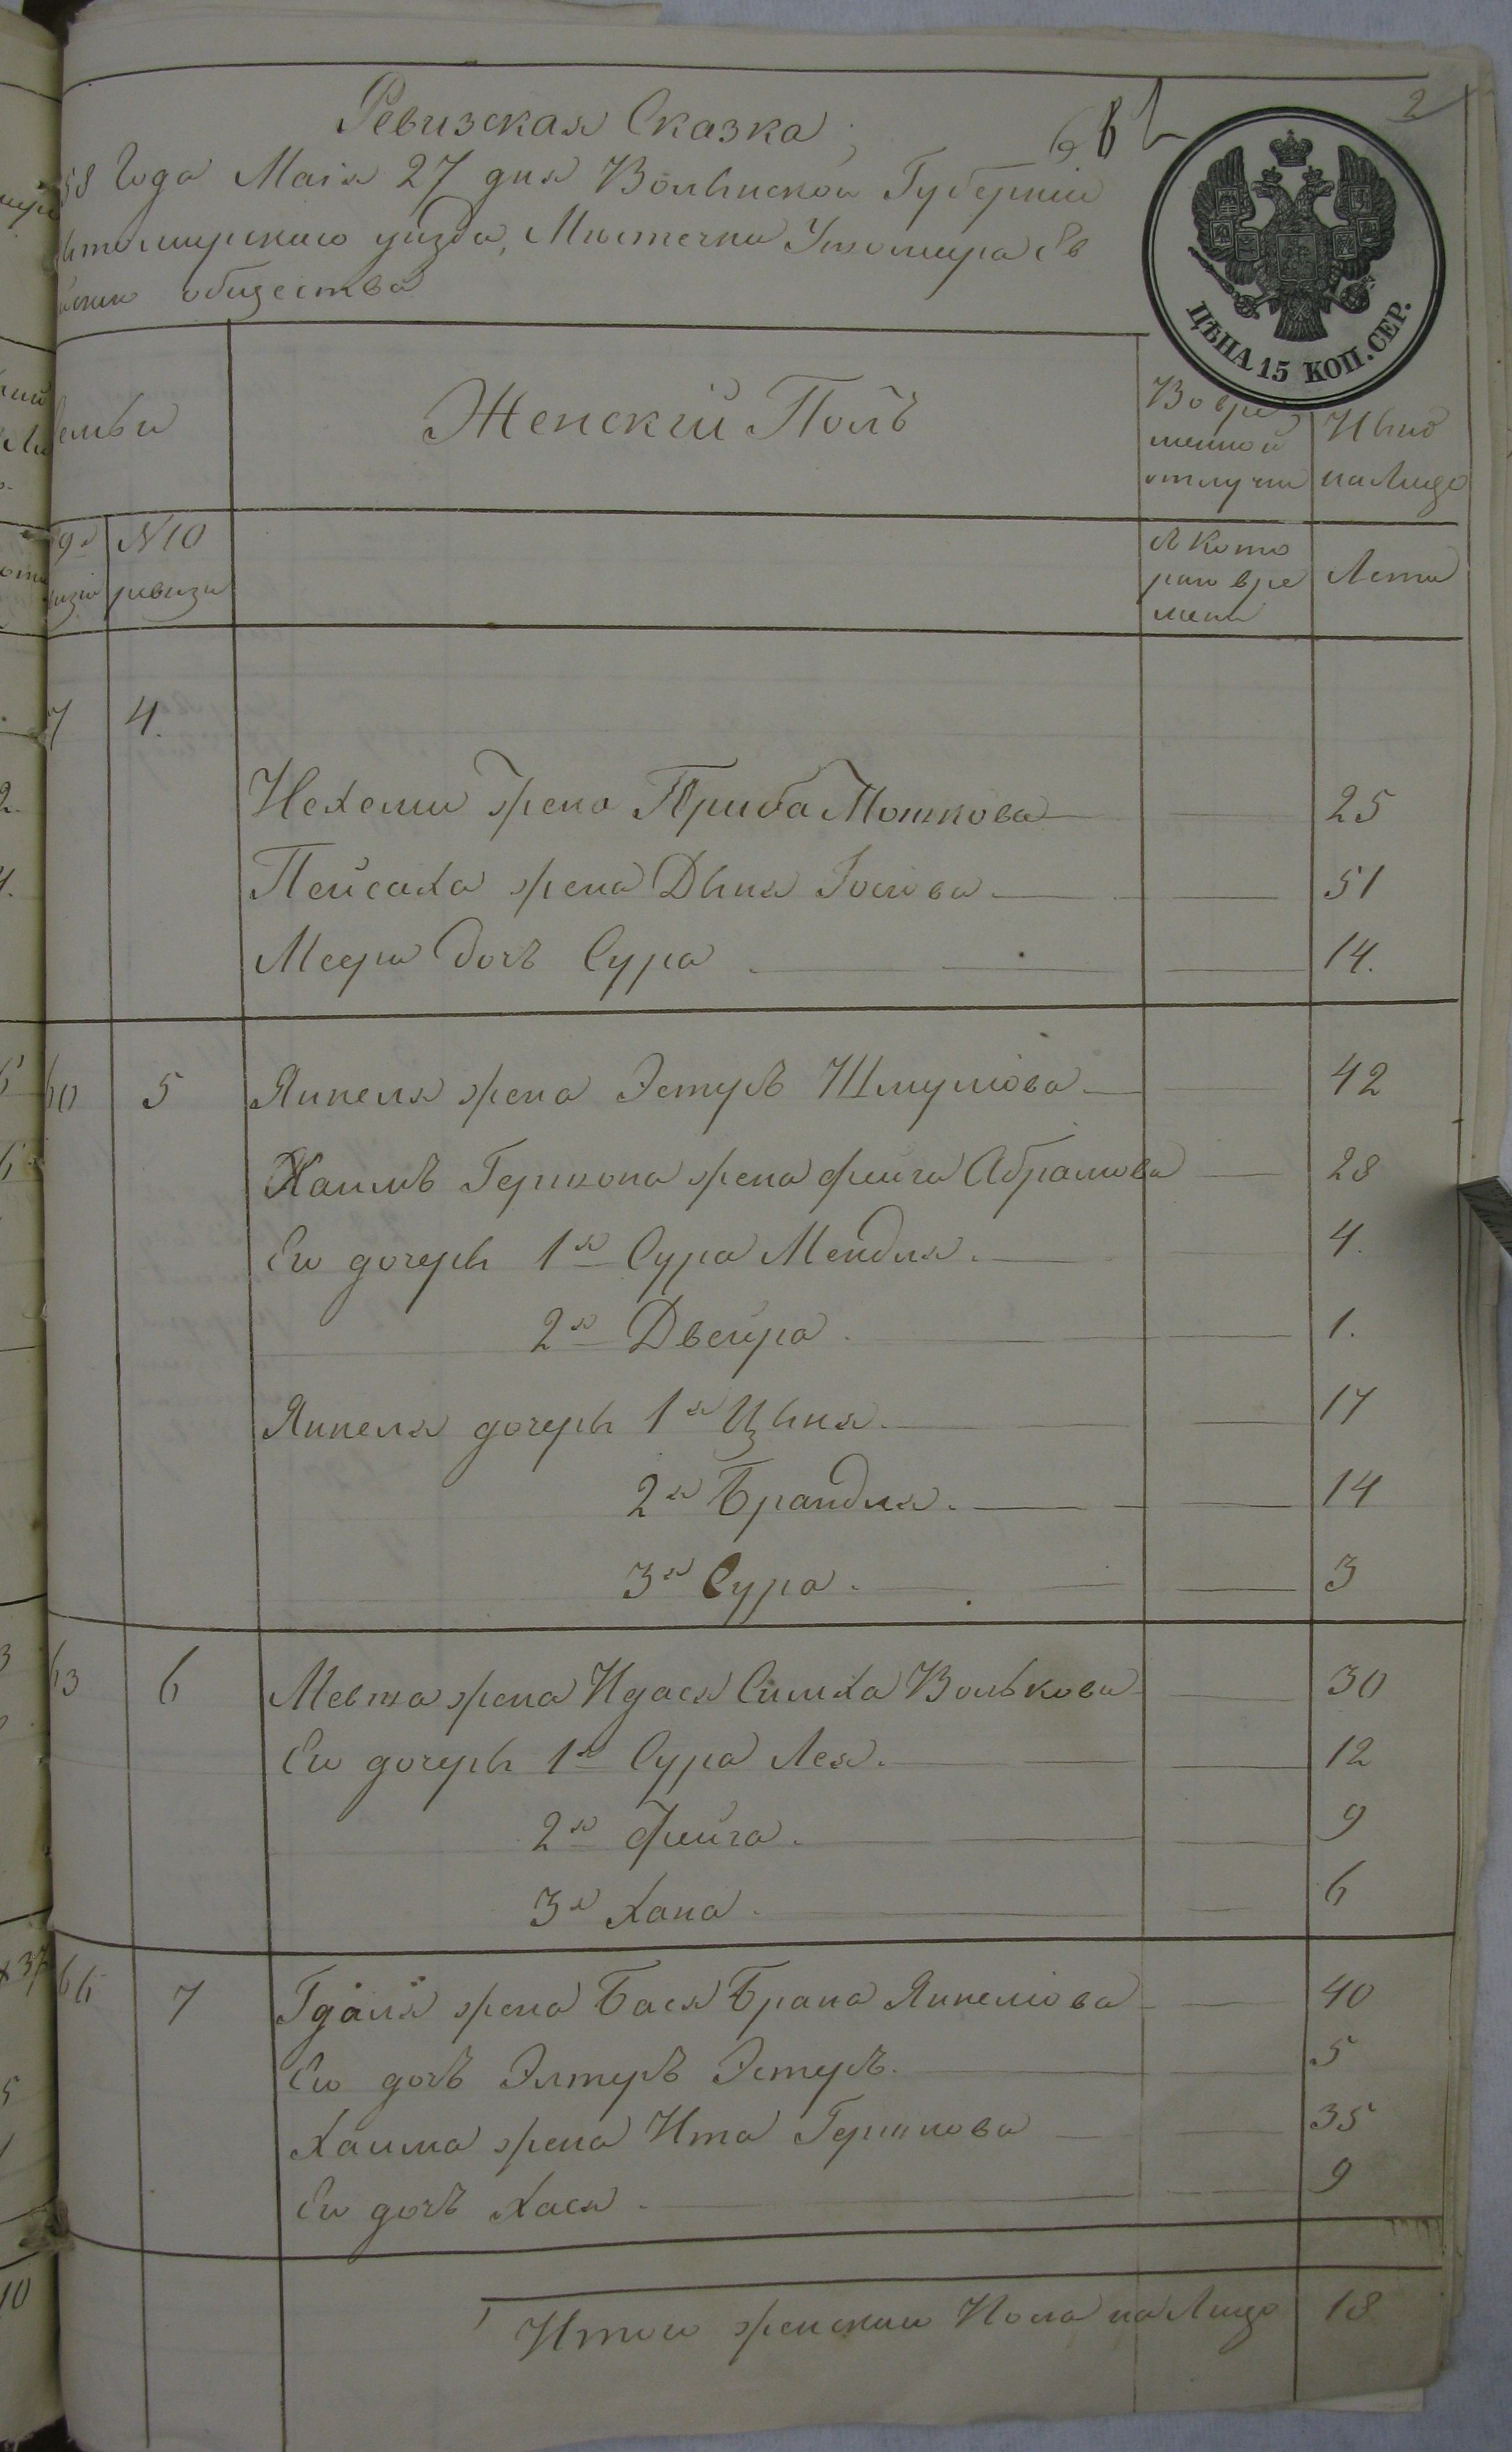 2
Ревизская Сказка
58 Года Маія 27 дня Волынской Губерніи
уезда, Местечка Ушомира Ев
общества
ЦѢНА 15 КОП. СЕР.
Женскій Полъ
Во вре
менной
отлучки
Ныне
на Лицо
9я
N 10
ревизіи
С Кото
раго вре
мени
Лета
7 4.
Нехеми жена Приба Мошкова 25
Пейсаха жена Дыня Госіова 51
Меера дочь Сура 14.
60 5 Янкеля жена Эстеръ Шмулiова 42
Хаимъ Гершона жена фейга Абрамова 28
Его дочери 1я Сура Мендля. 4.
2я Двейра. 1.
Янкеля дочери 1я Цыня. 17
2я Брандля. 14
3я Сура. 3
63 6 Жена Идася Симха Волькова 30
Его дочери 1я Сура Лея. 12
2я фейга. 9
3я Хана. 6
66 7 Гдаля жена Бася Брана Янкеліова 40
Его дочь Элтеръ Эстеръ. 5
Хаима жена Ита Гершкова 35
Его дочь Хася. 9
Итого женскаго Пола на Лицо 18